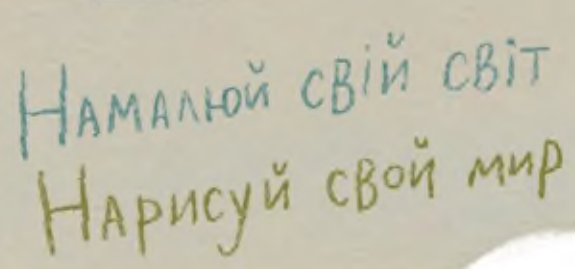 Намалюй свій світ
Нарисуй свой мир